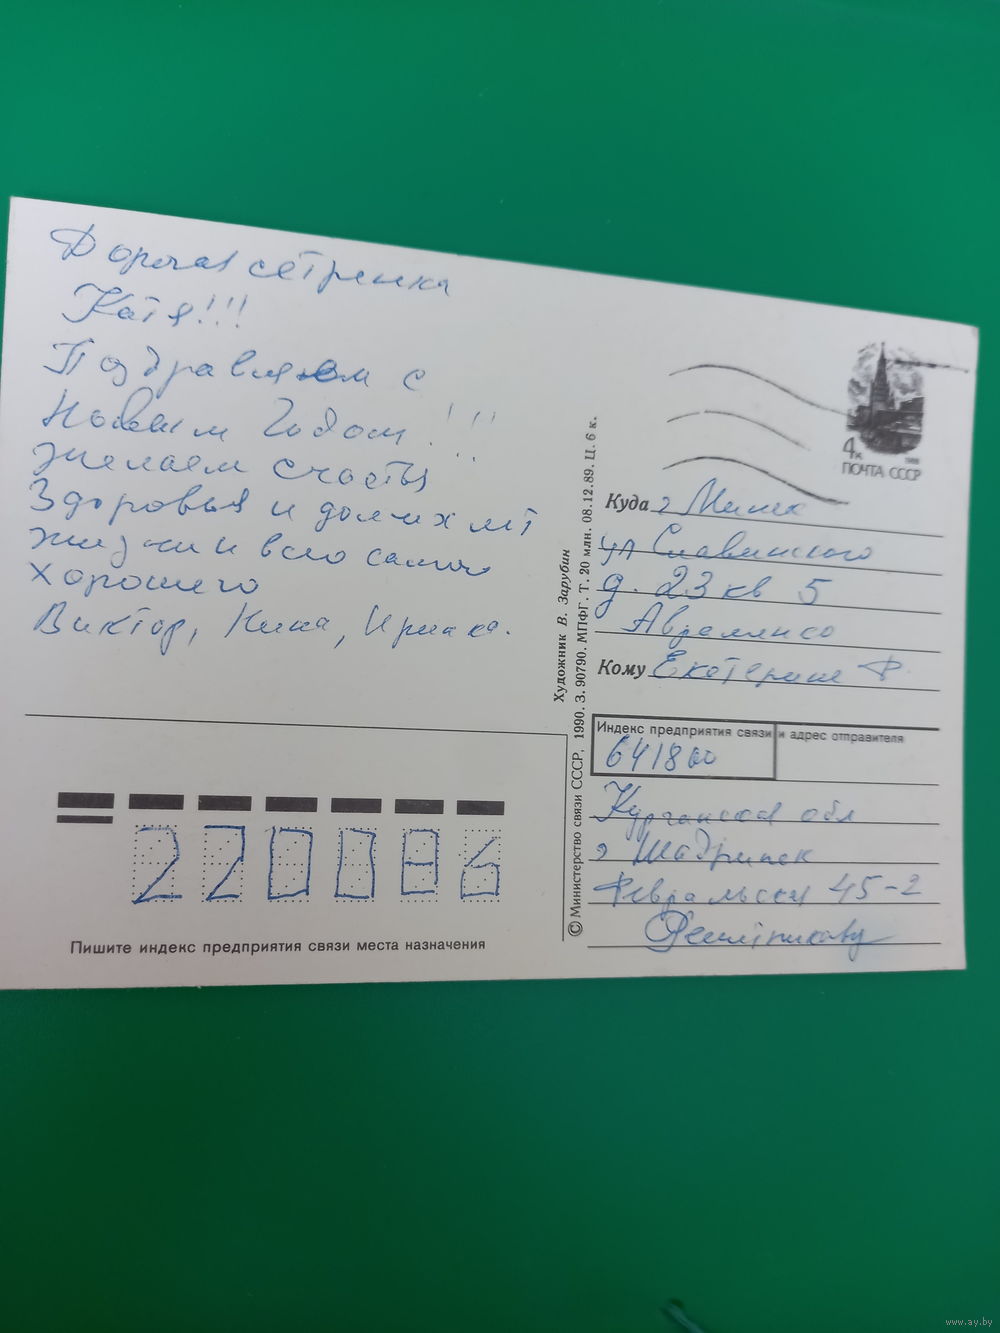 Дорогая сетренка
Катя!!!
Поздравляем с
Новым Годом!!!
Желаем счастья
Здоровья и долгих лет
жизни и всего самого
хорошего
Виктор, Нина, Иринка.
Пишите индекс предприятия связи места назначения
220086
© Министерство связи СССР, 1990. З. 90790. МПФГ. Т. 20 млн. 08.12.89. Ц. 6 к.
Художник В. Зарубин
4к
1988
ПОЧТА СССР
Куда г Минск
ул Славинского
д. 23 кв 5
Авраменко
Кому Екатерине Ф.
Индекс предприятия связи и адрес отправителя
641800
Курганская обл
г Шадринск
Февральская 45-2
www.ay.by